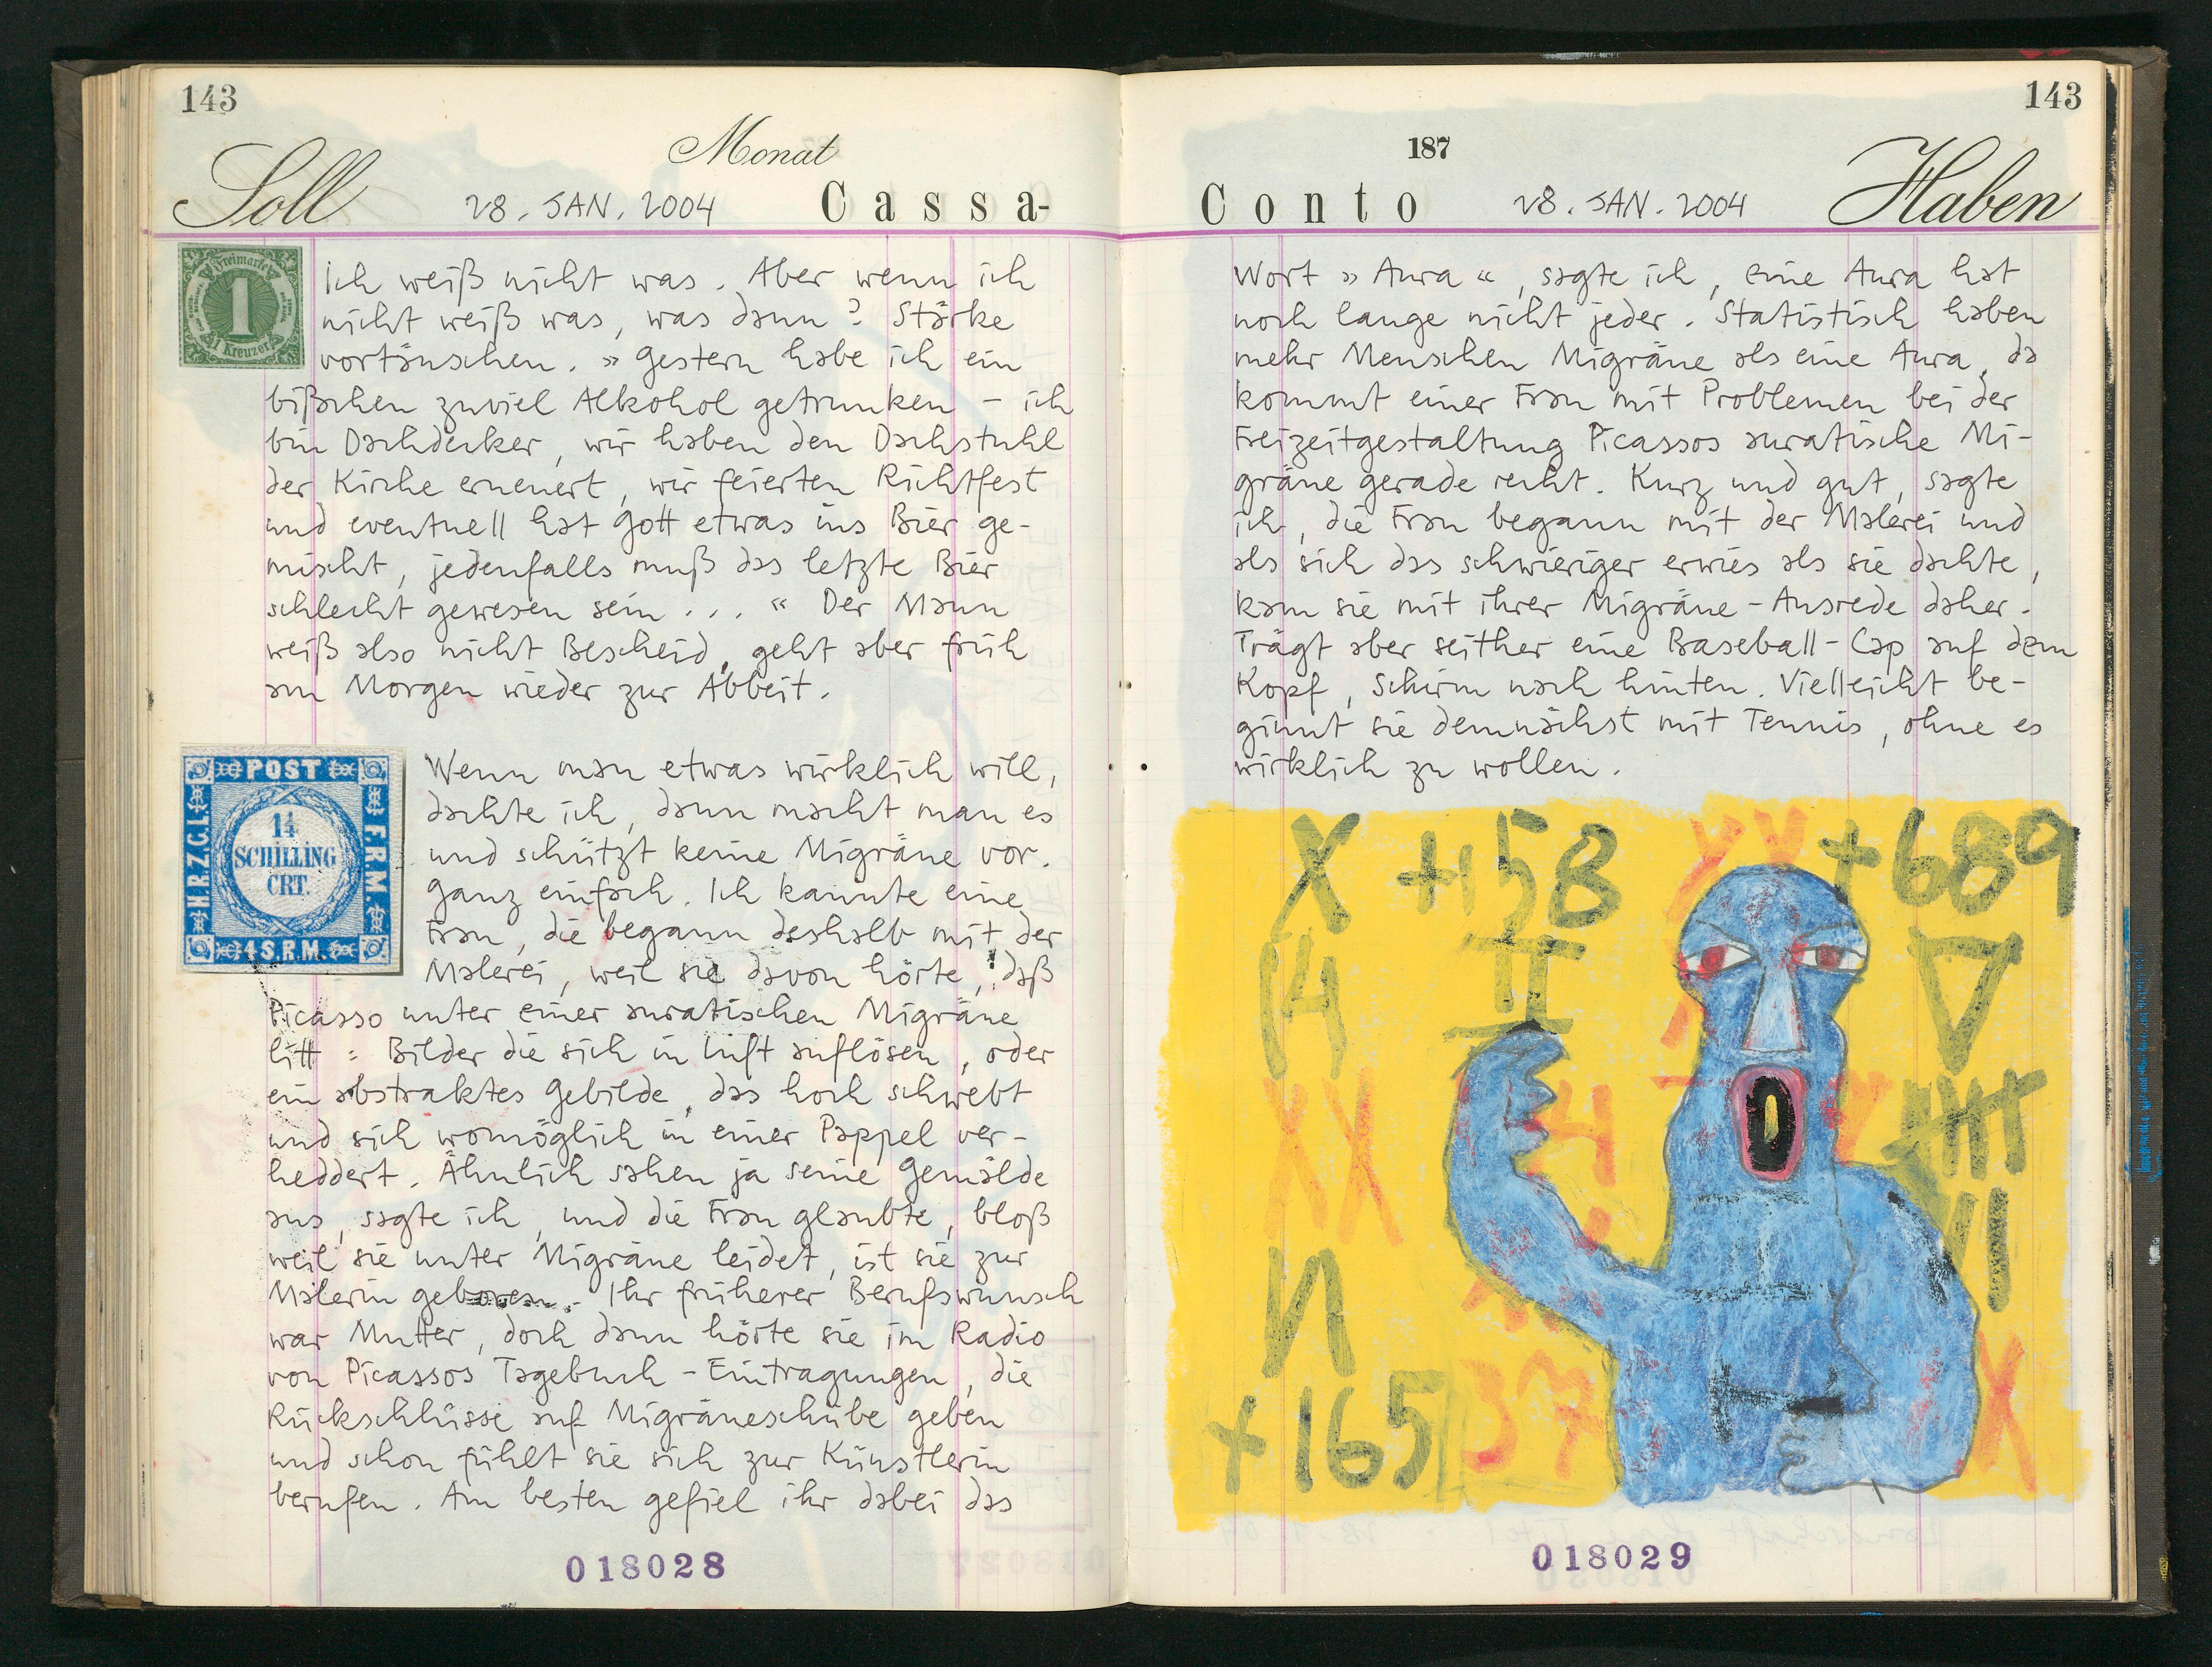 143
Monat
Soll
28. JAN. 2004
Cassa-
Freimarke
1
1 Kreuzer
Ich weiß nicht was. Aber wenn ich
nicht weiß was, was dann? Stärke
vortäuschen. » Gestern habe ich ein
bißchen zuviel Alkohol getrunken – ich
bin Dachdecker, wir haben den Dachstuhl
der Kirche erneuert, wir feierten Richtfest
und eventuell hat Gott etwas ins Bier ge-
mischt, jedenfalls muß das letzte Bier
schlecht gewesen sein... « Der Mann
weiß also nicht Bescheid, geht aber früh
am Morgen wieder zur Abbeit.
POST
H.R.Z.G.L.
F.R.M.
1¼
SCHILLING
CRT.
4 S.R.M.
Wenn man etwas wirklich will,
dachte ich, dann macht man es
und schützt keine Migräne vor.
Ganz einfach. Ich kannte eine
Frau, die begann deshalb mit der
Malerei, weil sie davon hörte, daß
Picasso unter einer auratischen Migräne
litt : Bilder die sich in Luft auflösen, oder
ein abstraktes Gebilde, das hoch schwebt
und sich womöglich in einer Pappel ver-
heddert. Ähnlich sahen ja seine Gemälde
aus, sagte ich, und die Frau glaubte, bloß
weil sie unter Migräne leidet, ist sie zur
Malerin geboren. Ihr früherer Berufswunsch
war Mutter, doch dann hörte sie im Radio
von Picassos Tagebuch-Eintragungen, die
Rückschlüsse auf Migräneschübe geben
und schon fühlt sie sich zur Künstlerin
berufen. Am besten gefiel ihr dabei das
018028
143
187
Conto
28. JAN. 2004
Haben
Wort » Aura «, sagte ich, eine Aura hat
noch lange nicht jeder. Statistisch haben
mehr Menschen Migräne als eine Aura, da
kommt einer Frau mit Problemen bei der
Freizeitgestaltung Picassos auratische Mi-
gräne gerade recht. Kurz und gut, sagte
ich, die Frau begann mit der Malerei und
als sich das schwieriger erwies als sie dachte,
kam sie mit ihrer Migräne-Ausrede daher.
Trägt aber seither eine Baseball-Cap auf dem
Kopf, Schirm nach hinten. Vielleicht be-
ginnt sie demnächst mit Tennis, ohne es
wirklich zu wollen.
X +158 +689
14 II
XX 4
VI
N
+165 37 X
018029